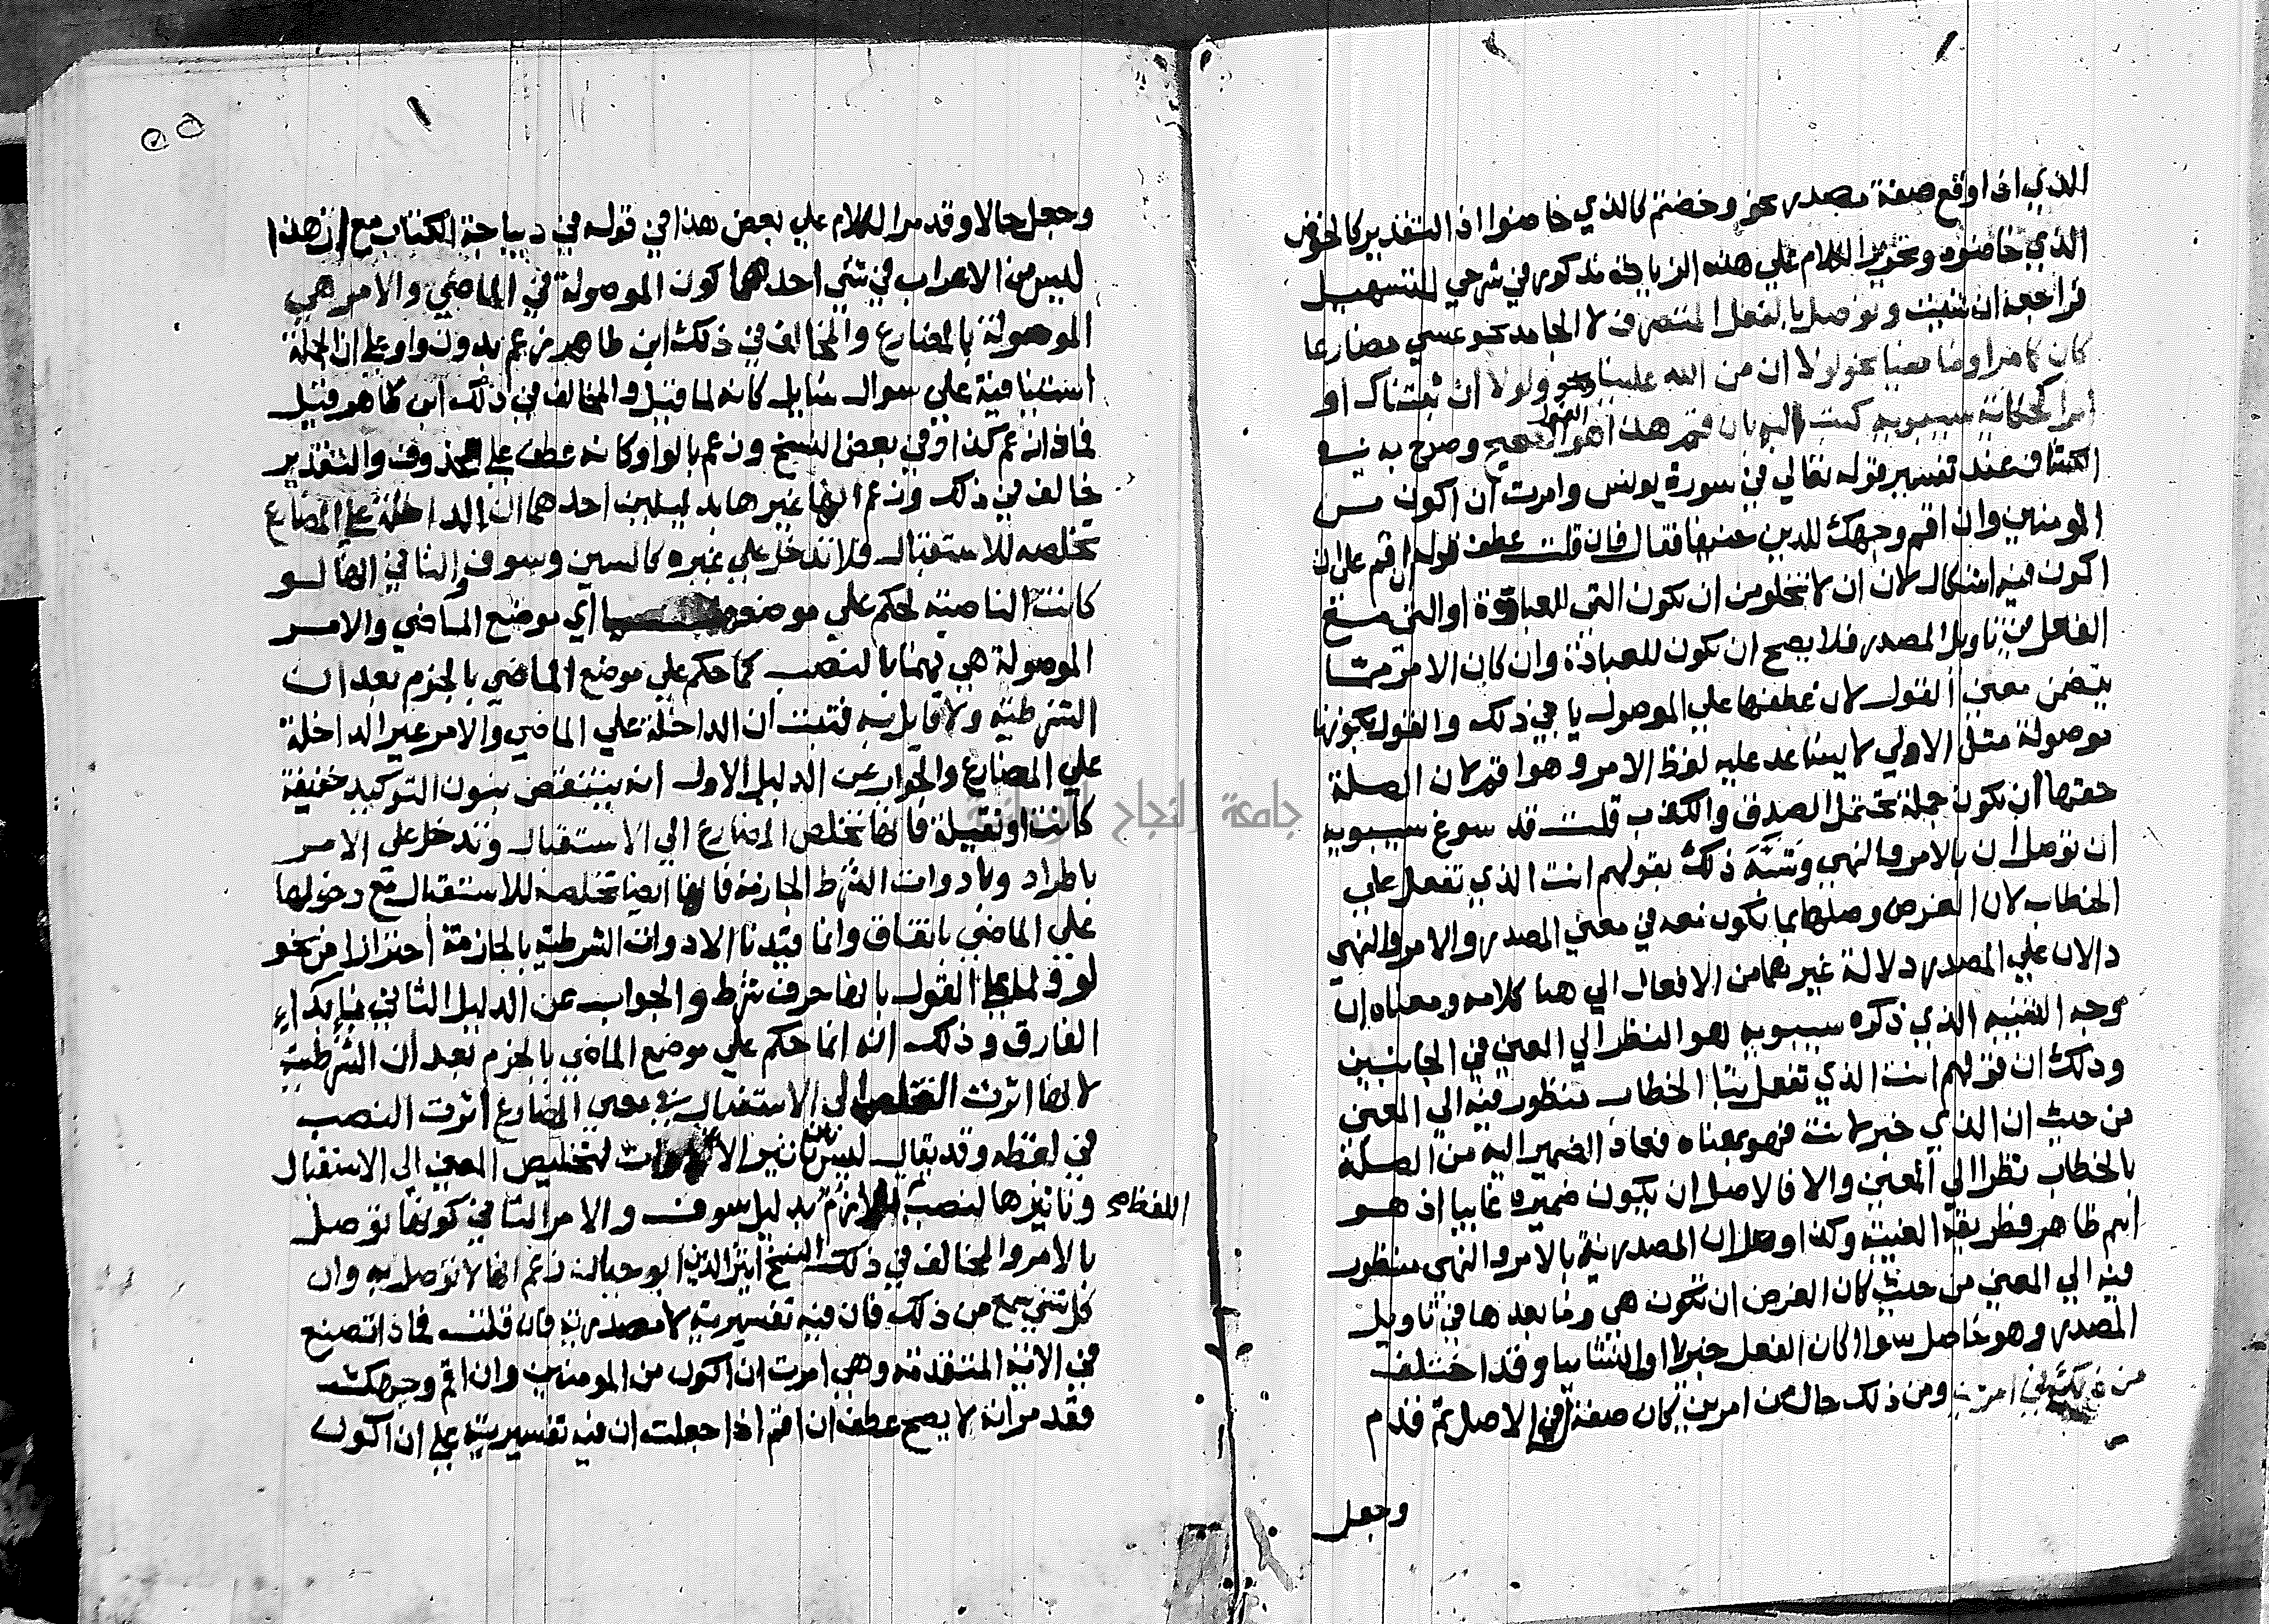 الذي اذا وقع صفة مصدر نحو وخضتم كالذي خاضوا اذ التقدير كالخوض
الذي خاضوه وتحرير الكلام علي هذه الزيادة مذكور في شرحي للتسهيل
فراجعه ان شيت وتوصل بالفعل المتصرف لا الجامد نحو عسي مضارعا
كان كما مر او ماضيا نحو لولا ان من الله علينا ونحو ولولا ان ثبتناك او
امرا كحكاية سيبويه كتبت اليه بان قم هذا هو القول الصحيح وصرح به في
الكشاف عند تفسير قوله تعالي في سورة يونس وامرت ان اكون من
المومنين وان اقم وجهك للدين حنيفا فقال فان قلت عطف قوله ان اقم علي ان
اكون فيه اشكال لان ان لا تخلو من ان تكون التي للعبارة او التي مع
الفعل في تاويل المصدر فلا يصح ان تكون للعبادة وان كان الامر مما
يتضمن معني القول لان عطفها علي الموصولة يابي ذلك والقول بكونها
موصولة مثل الاولي لا يساعد عليه لفظ الامر وهو اقم لان الصلة
حقها ان تكون جملة تحتمل الصدق والكذب قلت قد سوغ سيبويه
ان توصل ان بالامر والنهي وشبه ذلك بقولهم انت الذي تفعل علي
الخطاب لان الغرض وصلها بما تكون معه في معني المصدر والامر والنهي
دالان علي المصدر دلالة غيرهما من الافعال الي هنا كلامه ومعناه ان
وجه التشبيه الذي ذكره سيبويه هو النظر الي المعني في الجانبين
وذلك ان قولهم انت الذي تفعل بتا الخطاب منظور فيه الي المعني
من حيث ان الذي خبر لانت فهو بمعناه فعاد الضمير اليه من الصلة
بالخطاب نظرا الي المعني والا فالاصل ان يكون ضميره غايبا اذ هو
اسم ظاهر فطريقه الغيبة وكذا وصل ان المصدرية بالامر والنهي منظور
فيه الي المعني من حيث كان الغرض ان تكون هي وما بعدها في تاويل
المصدر وهو حاصل سوا كان الفعل خبريا او انشائيا وقد اختلف
ومن ذلك حال من امرين كان صفة في الاصل ثم قدم
وجعل
وجعل حالا وقد مر الكلام علي بعض هذا في قوله في ديباجة الكتاب مع ان هذا
ليس من الاعراب في شي احدهما كون الموصولة في الماضي والامر هي
الموصولة بالمضارع والمخالف في ذلك ابن طاهر زعم بدون واو علي ان الجملة
استينافية علي سوال سايل كانه لما قيل والمخالف في ذلك ابن طاهر قيل
فماذا زعم كذا وفي بعض النسخ وزعم بالواو كانه عطف علي محذوف والتقدير
خالف في ذلك وزعم انها غيرها بدليلين احدهما ان الداخلة علي المضارع
تخلصه للاستقبال فلا تدخل علي غيره كالسين وسوف والثاني انها لو
كانت الناصبة لحكم علي موضعها اي موضع الماضي والامر
الموصولة هي بهما بالنصب كما حكم علي موضع الماضي بالجزم بعد ان
الشرطية ولا قايل به فثبت ان الداخلة علي الماضي والامر غير الداخلة
علي المضارع والجواب عن الدليل الاول انه ينتقض بنون التوكيد خفيفة
كانت او ثقيلة فانها تخلص المضارع الي الاستقبال وتدخل علي الامر
باطراد وبادوات الشرط الجازمة فانها ايضا تخلصه للاستقبال مع دخولها
علي الماضي باتفاق وانما قيدنا الادوات الشرطية بالجازمة احترازا من نحو
لو ولما علي القول بانها حرف شرط والجواب عن الدليل الثاني بابداء
الفارق وذلك انه انما حكم علي موضع الماضي بالجزم بعد ان الشرطية
لانها اثرت التخلص الي الاستقبال في معني المضارع اثرت النصب
في لفظه وقد يقال ليس تاثير لتخليص المعني الي الاستقبال
وتاثيرها لنصب اللفظ بلازم بدليل سوف والامر الثاني كونها توصل
بالامر والمخالف في ذلك الشيخ اثير الدين ابو حيان زعم انها لا توصل به وان
كل شي سمع من ذلك فان فيه تفسيرية لا مصدرية فان قلت فماذا تصنع
في الاية المتقدمة وهي امرت ان اكون من المومنين وان اقم وجهك
فقد مر انه لا يصح عطف ان اقم اذا جعلت ان فيه تفسيرية علي ان اكون